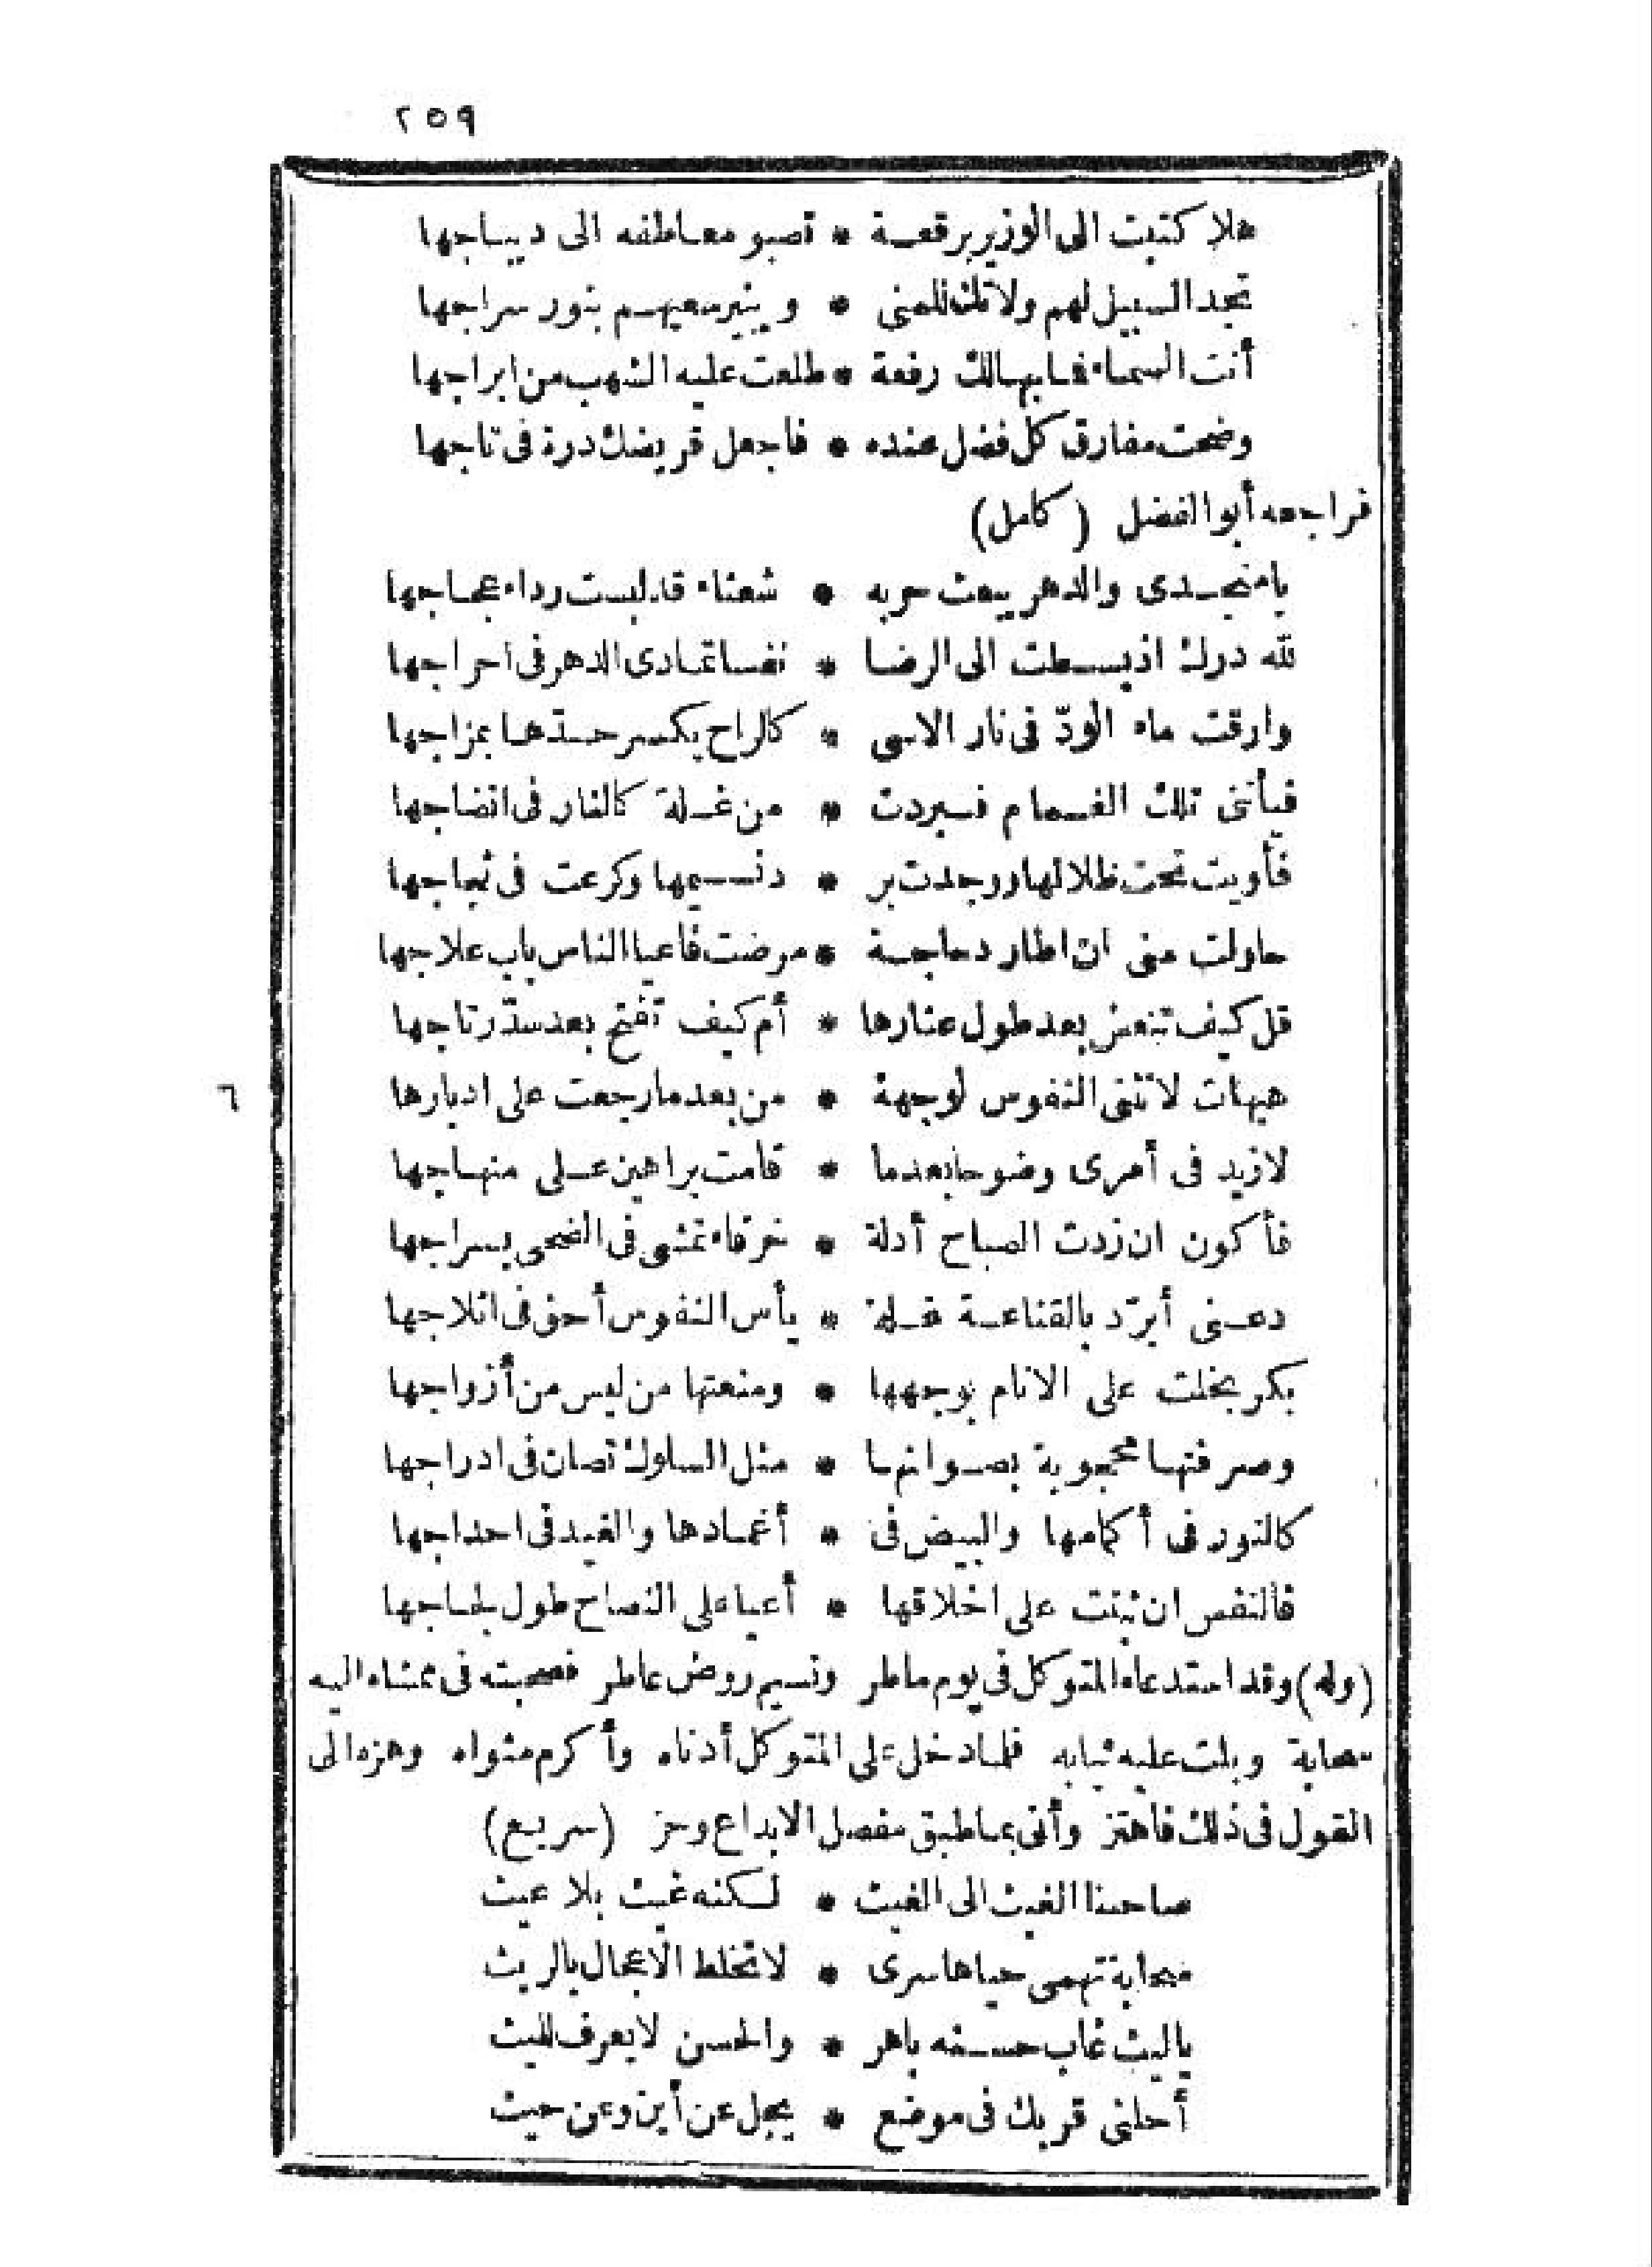 ٢٥٩
هلا كتبت الى الوزير برقعة * تصبو معاطفه الى ديباجها
تجد السبيل لهم ولاتك للمنى * وينير سعيهم بنور سراجها
أنت السماء فما بهالك رفعة * طلعت عليه الشهب من ابراجها
وضحت مفارق كل فضل عنده * فاجعل قريضك درة فى تاجها
فراجعه أبو الفضل (كامل)
يا منجدى والدهر يبعث حربه * شعثاء قد لبست رداء عجاجها
لله درك اذ بسطت الى الرضا * نفسا تمادى الدهر فى احراجها
وارقت ماء الودّ فى نار الاسى * كالراح يكسر حدّها بمزاجها
فيأتنى تلك الغمام فبردت * من غلة كالنار فى انضاجها
فأويت تحت ظلالها ووجدت بر * د نسيمها وكرعت فى ثجاجها
حاولت منى ان اطارد حاجة * مرضت فاعيا الناس باب علاجها
قل كيف تنعش بعد طول عثارها * أم كيف تفتح بعد سدّ رتاجها
هيهات لا تثنى النفوس لوجهة * من بعد ما رجعت على ادبارها
٦
لازيد فى أمرى وضوحا بعدما * قامت براهين على منهاجها
فأكون ان زدت الصباح أدلة * خرقاء تمشى فى الضحى بسراجها
دعنى أبرّد بالقناعة غلة * يأس النفوس أحق فى اثلاجها
بكر بخلت على الانام بوجهها * ومنعتها من ليس من أزواجها
وصرفتها محجوبة بصوانها * مثل السلوك تصان فى ادراجها
كالنور فى أكمامها والبيض فى * أغمادها والغيد فى احداجها
فالنفس ان ثبتت على اخلاقها * أعيا على النصاح طول لجاجها
(وله) وقد استدعاه المتوكل فى يوم ماطر ونسيم روض عاطر فصحبته فى ممشاه اليه
سحابة وبلت عليه ثيابه فلما دخل على المتوكل أدناه وأكرم مثواه وهزه الى
القول فى ذلك فاهتز وأتى بما طبق مفصل الابداع وحز (سريع)
صاحبنا الغيث الى الغيث * لكنه غيث بلا عيث
سحابة تهمى حياها سرى * لا تخلط الاعجال بالريث
يا ليث غاب حسنه باهر * والحسن لا يعرف لليث
أحلنى قربك فى موضع * يجل عن أين وعن حيث